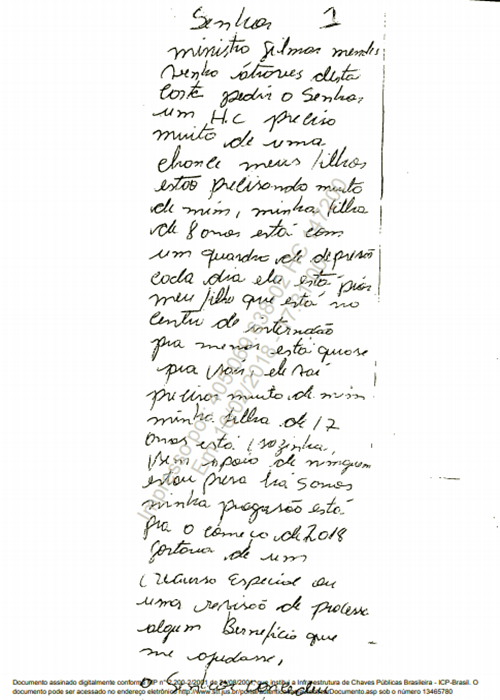 Senhor 1
ministro Gilmar mendes
venho átraves desta
corte pedir o Senhor
um HC preciso
muito de uma
chance meus filhos
estão precisando muito
de mim, minha filha
de 8 anos está com
um quadro de depresão
cada dia ela está pior
meu filho que está no
centro de internação
pra menor está quase
pra sair, ele vai
precisar muito de mim
minha filha de 17
anos está sozinha,
sem apoio de ninguem
estou presa há 5 anos
minha progresão está
pra o começo de 2018
gostaria de um
recurso Especial ou
uma revisão de processo
algum Beneficio que
me ajudasse,
o Senhor
Documento assinado digitalmente conforme MP n° 2.200-2/2001 de 24/08/2001, que institui a Infraestrutura de Chaves Públicas Brasileira - ICP-Brasil. O
documento pode ser acessado no endereço eletrônico http://www.stf.jus.br/portal/ sob o número 13465780